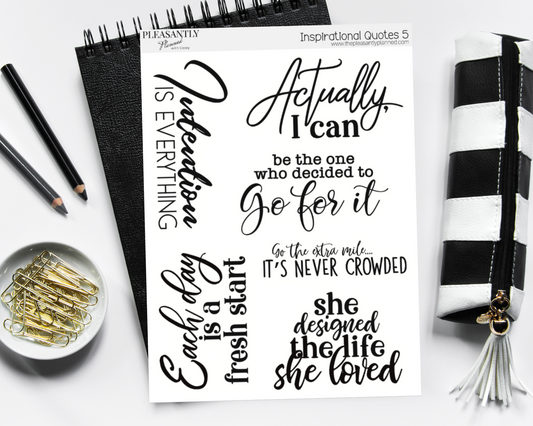 PLEASANTLY
Planned
Inspirational Quotes 5
www.thepleasantlyplanned.com
Intention
IS EVERYTHING
Actually,
I can
be the one
who decided to
Go for it
Each day
is a
fresh start
Go the extra mile....
IT'S NEVER CROWDED
she
designed
the life
she loved